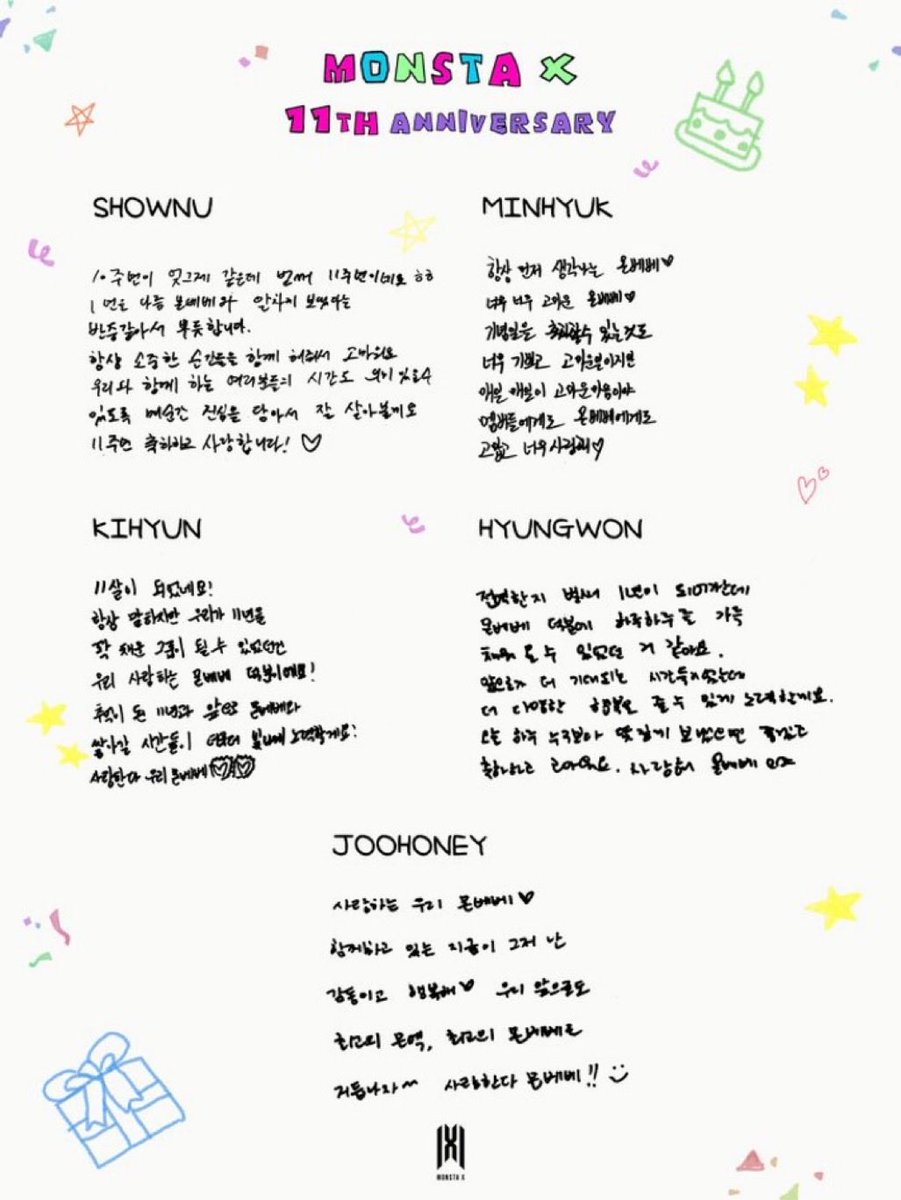 MONSTA X
11TH ANNIVERSARY
SHOWNU
10주년이 엊그제 같은데 벌써 11주년이네요 ㅎㅎ
1년을 나름 몬베베와 알차게 보냈다는
반증같아서 뿌듯합니다.
항상 소중한 순간들을 함께 해줘서 고마워요
우리와 함께 하는 여러분들의 시간도 의미있을수
있도록 매순간 진심을 담아서 잘 살아볼게요
11주년 축하하고 사랑합니다! ♡
MINHYUK
항상 먼저 생각나는 몬베베♥
너무 너무 고마운 몬베베♥
기념일을 축하할수 있는것도
너무 기쁘고 고마운일이지만
매일 매일이 고마운마음이야
멤버들에게도 몬베베에게도
고맙고 너무 사랑해♥
KIHYUN
11살이 되었네요!
항상 말하지만 우리가 11년을
꽉 채운 그룹이 될 수 있었던건
우리 사랑하는 몬베베 덕분이에요!
추억이 된 11년과 앞으로 몬베베와
쌓아갈 시간들이 더 빛나게 노력할게요!
사랑한다 우리 몬베베♡♡
HYUNGWON
전역한지 벌써 1년이 되어가는데
몬베베 덕분에 하루하루를 가득
채워 올 수 있었던 거 같아요.
앞으로가 더 기대되는 시간들이었는데
더 다양한 행복을 줄 수 있게 노력할게요.
오늘 하루 누구보다 멋지게 보냈으면 좋겠고
축하하고 고마워요. 사랑해 몬베베
JOOHONEY
사랑하는 우리 몬베베♥
함께하고 있는 지금이 그저 난
감동이고 행복해♥ 우리 앞으로도
최고의 몬엑, 최고의 몬베베로
거듭나자~ 사랑한다 몬베베!!
MONSTA X